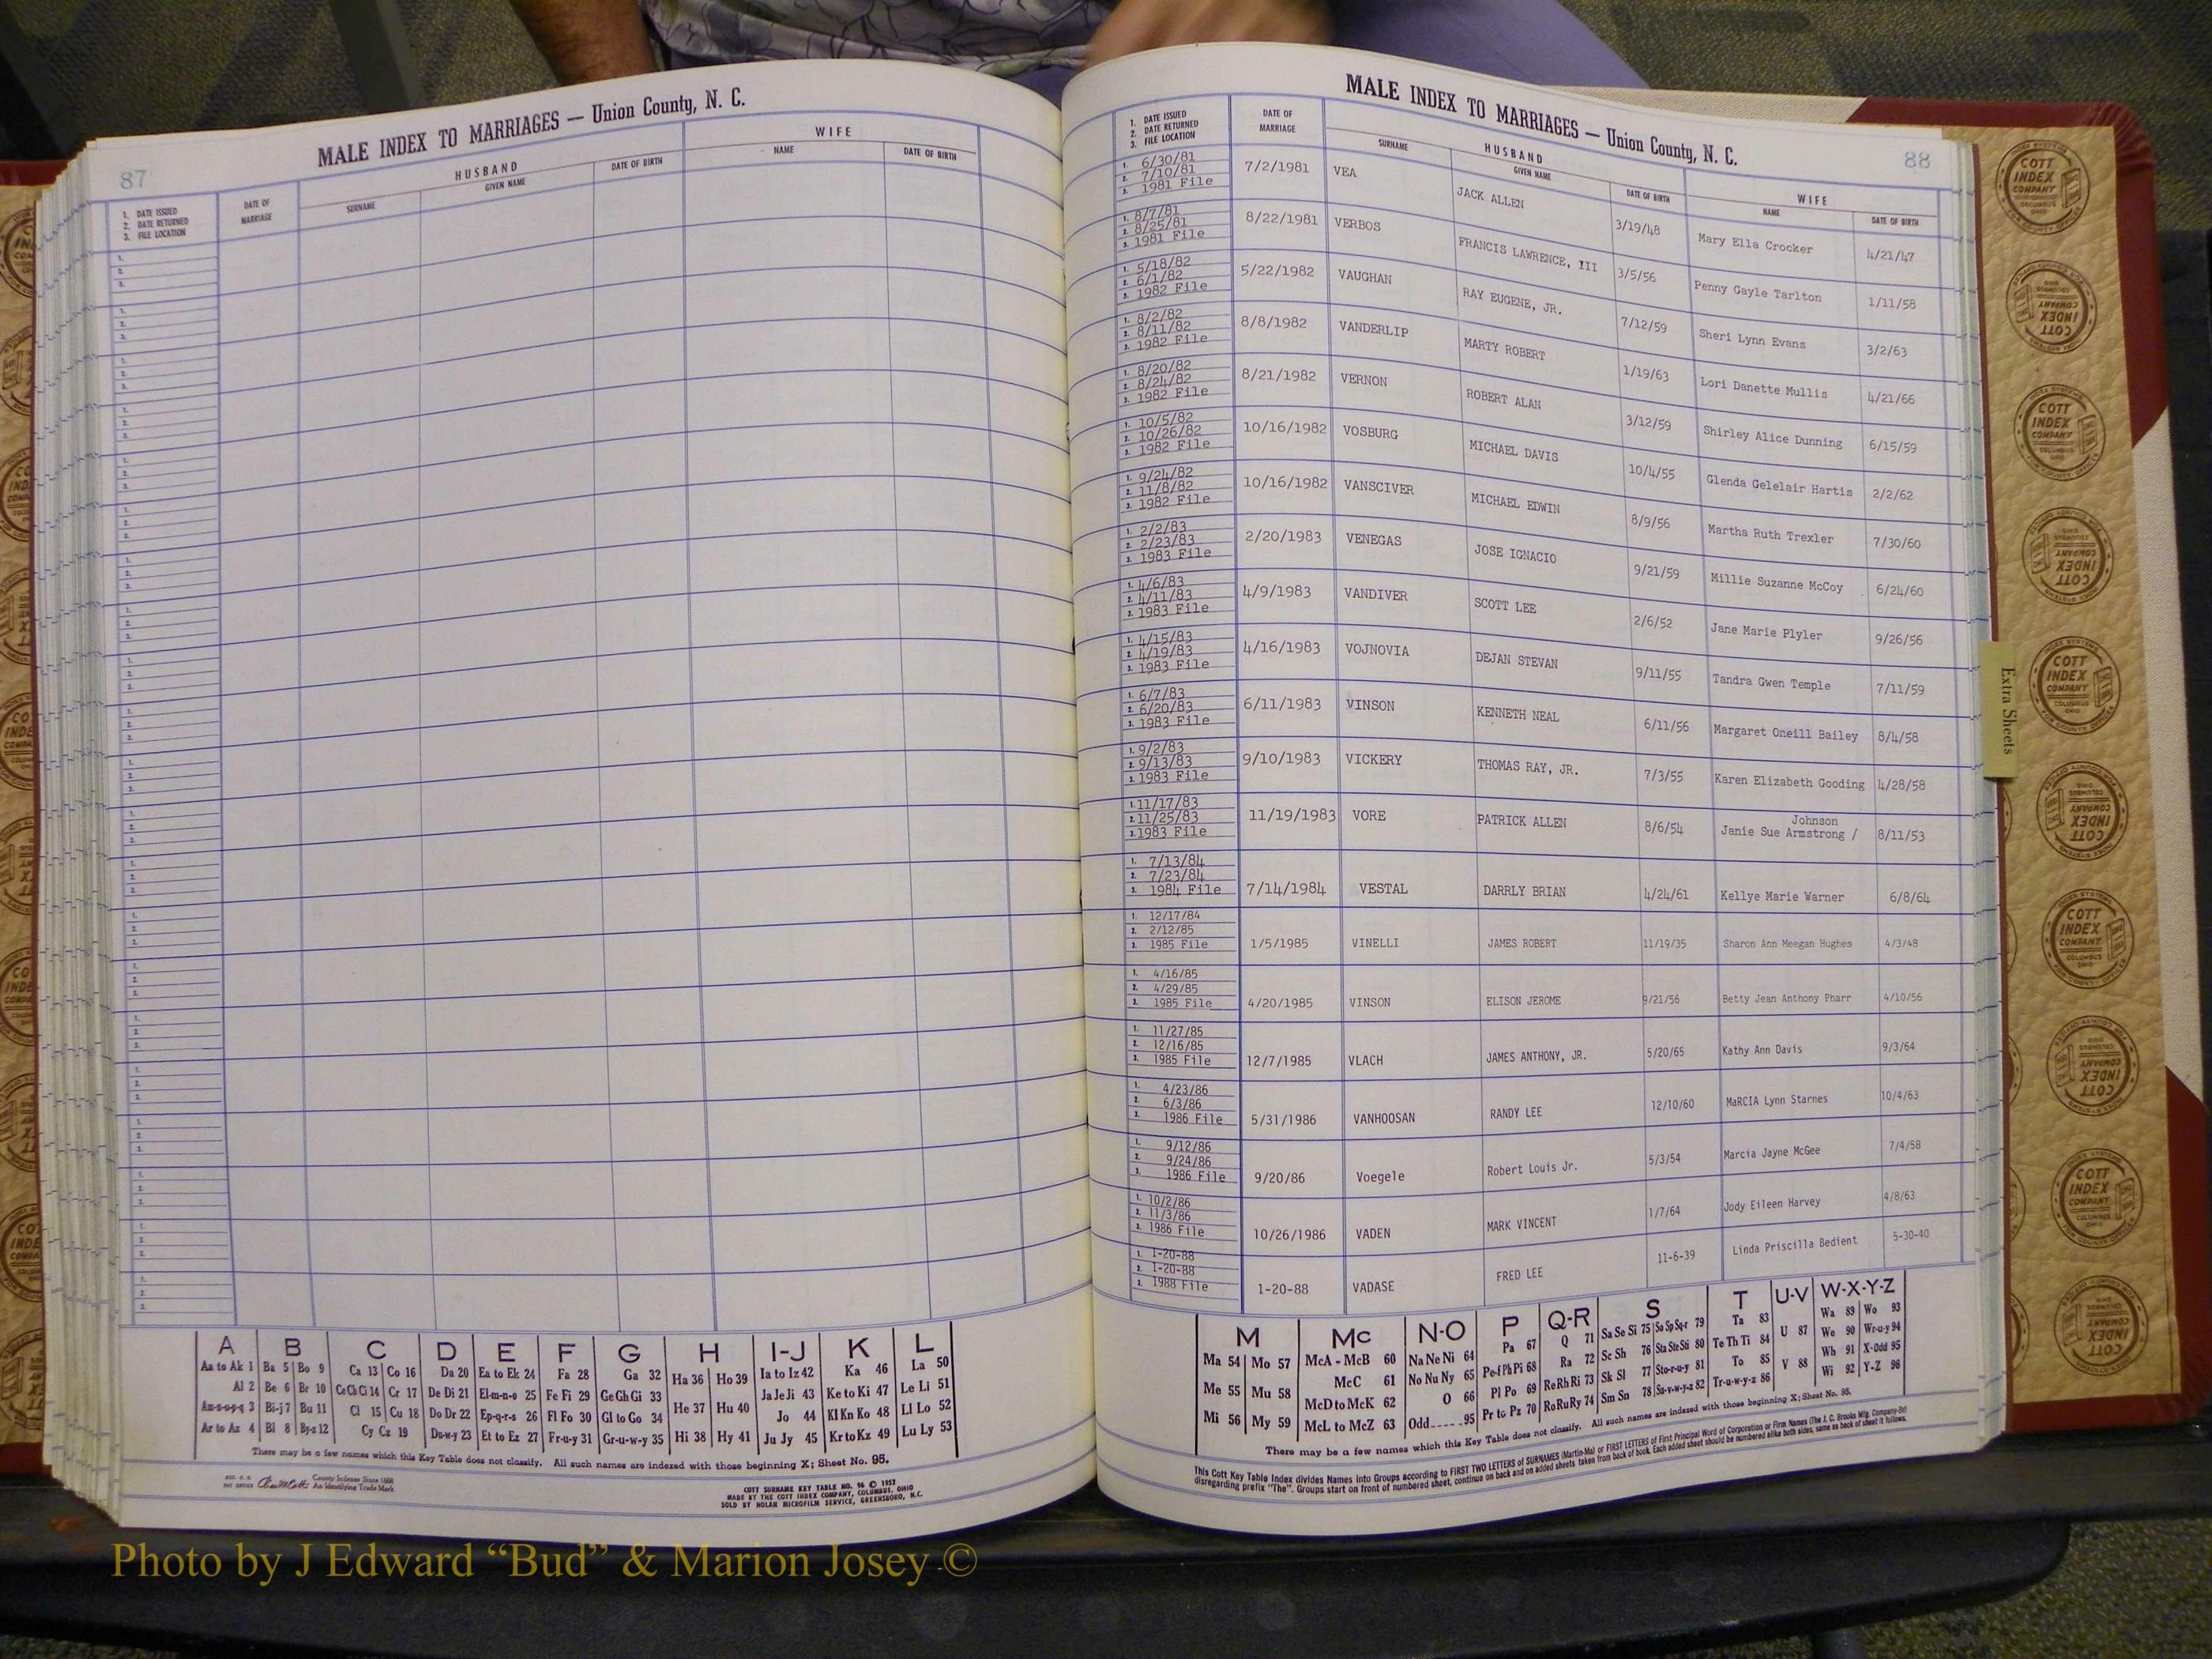 87
MALE INDEX TO MARRIAGES — Union County, N. C.
1. DATE ISSUED
2. DATE RETURNED
3. FILE LOCATION
DATE OF MARRIAGE
HUSBAND
SURNAME GIVEN NAME DATE OF BIRTH
WIFE
NAME DATE OF BIRTH
A B C D E F G H I-J K L
Aa to Ak 1 Ba 5 Bo 9 Ca 13 Co 16 Da 20 Ea to Ek 24 Fa 28 Ga 32 Ha 36 Ho 39 Ia to Iz 42 Ka 46 La 50
Al 2 Be 6 Br 10 Ce Ch Ci 14 Cr 17 De Di 21 El-m-n-o 25 Fe Fi 29 Ge Gh Gi 33 He 37 Hu 40 Ja Je Ji 43 Ke to Ki 47 Le Li 51
Am-n-o-p-q 3 Bi-j 7 Bu 11 Cl 15 Cu 18 Do Dr 22 Ep-q-r-s 26 Fl Fo 30 Gl to Go 34 Hi 38 Hy 41 Jo 44 Kl Kn Ko 48 Ll Lo 52
Ar to Az 4 Bl 8 By-z 12 Cy Cz 19 Du-w-y 23 Et to Ez 27 Fr-u-y 31 Gr-u-w-y 35 Ju Jy 45 Kr to Kz 49 Lu Ly 53
There may be a few names which this Key Table does not classify. All such names are indexed with those beginning X; Sheet No. 95.
County Indexes Since 1888
An Identifying Trade Mark
COTT SURNAME KEY TABLE NO. 96 © 1952
MADE BY THE COTT INDEX COMPANY, COLUMBUS, OHIO
SOLD BY NOLAN MICROFILM SERVICE, GREENSBORO, N.C.
MALE INDEX TO MARRIAGES — Union County, N. C.
88
1. DATE ISSUED
2. DATE RETURNED
3. FILE LOCATION
DATE OF MARRIAGE
HUSBAND
SURNAME GIVEN NAME DATE OF BIRTH
WIFE
NAME DATE OF BIRTH
1. 6/30/81
2. 7/10/81
3. 1981 File
7/2/1981 VEA JACK ALLEN 3/19/48 Mary Ella Crocker 4/21/47
1. 8/7/81
2. 8/25/81
3. 1981 File
8/22/1981 VERBOS FRANCIS LAWRENCE, III 3/5/56 Penny Gayle Tarlton 1/11/58
1. 5/18/82
2. 6/1/82
3. 1982 File
5/22/1982 VAUGHAN RAY EUGENE, JR. 7/12/59 Sheri Lynn Evans 3/2/63
1. 8/2/82
2. 8/11/82
3. 1982 File
8/8/1982 VANDERLIP MARTY ROBERT 1/19/63 Lori Danette Mullis 4/21/66
1. 8/20/82
2. 8/24/82
3. 1982 File
8/21/1982 VERNON ROBERT ALAN 3/12/59 Shirley Alice Dunning 6/15/59
1. 10/5/82
2. 10/26/82
3. 1982 File
10/16/1982 VOSBURG MICHAEL DAVIS 10/4/55 Glenda Gelelair Hartis 2/2/62
1. 9/24/82
2. 11/8/82
3. 1982 File
10/16/1982 VANSCIVER MICHAEL EDWIN 8/9/56 Martha Ruth Trexler 7/30/60
1. 2/2/83
2. 2/23/83
3. 1983 File
2/20/1983 VENEGAS JOSE IGNACIO 9/21/59 Millie Suzanne McCoy 6/24/60
1. 4/6/83
2. 4/11/83
3. 1983 File
4/9/1983 VANDIVER SCOTT LEE 2/6/52 Jane Marie Plyler 9/26/56
1. 4/15/83
2. 4/19/83
3. 1983 File
4/16/1983 VOJNOVIA DEJAN STEVAN 9/11/55 Tandra Gwen Temple 7/11/59
1. 6/7/83
2. 6/20/83
3. 1983 File
6/11/1983 VINSON KENNETH NEAL 6/11/56 Margaret Oneill Bailey 8/4/58
1. 9/2/83
2. 9/13/83
3. 1983 File
9/10/1983 VICKERY THOMAS RAY, JR. 7/3/55 Karen Elizabeth Gooding 4/28/58
1. 11/17/83
2. 11/25/83
3. 1983 File
Johnson
11/19/1983 VORE PATRICK ALLEN 8/6/54 Janie Sue Armstrong / 8/11/53
1. 7/13/84
2. 7/23/84
3. 1984 File
7/14/1984 VESTAL DARRLY BRIAN 4/24/61 Kellye Marie Warner 6/8/64
1. 12/17/84
2. 2/12/85
3. 1985 File
1/5/1985 VINELLI JAMES ROBERT 11/19/35 Sharon Ann Meegan Hughes 4/3/48
1. 4/16/85
2. 4/29/85
3. 1985 File
4/20/1985 VINSON ELISON JEROME 9/21/56 Betty Jean Anthony Pharr 4/10/56
1. 11/27/85
2. 12/16/85
3. 1985 File
12/7/1985 VLACH JAMES ANTHONY, JR. 5/20/65 Kathy Ann Davis 9/3/64
1. 4/23/86
2. 6/3/86
3. 1986 File
5/31/1986 VANHOOSAN RANDY LEE 12/10/60 MaRCIA Lynn Starnes 10/4/63
1. 9/12/86
2. 9/24/86
3. 1986 File
9/20/86 Voegele Robert Louis Jr. 5/3/54 Marcia Jayne McGee 7/4/58
1. 10/2/86
2. 11/3/86
3. 1986 File
10/26/1986 VADEN MARK VINCENT 1/7/64 Jody Eileen Harvey 4/8/63
1. 1-20-88
2. 1-20-88
3. 1988 File
1-20-88 VADASE FRED LEE 11-6-39 Linda Priscilla Bedient 5-30-40
M Mc N-O P Q-R S T U-V W-X-Y-Z
Ma 54 Mo 57 McA - McB 60 Na Ne Ni 64 Pa 67 Q 71 Sa Se Si 75 So Sp Sq-r 79 Ta 83 U 87 Wa 89 Wo 93
Me 55 Mu 58 McC 61 No Nu Ny 65 Pe-f Ph Pi 68 Ra 72 Sc Sh 76 Sta Ste Sti 80 Te Th Ti 84 V 88 We 90 Wr-u-y 94
Mi 56 My 59 McD to McK 62 O 66 Pl Po 69 Re Rh Ri 73 Sk Sl 77 Sto-r-u-y 81 To 85 Wh 91 X-Odd 95
McL to McZ 63 Odd-----95 Pr to Pz 70 Ro Ru Ry 74 Sm Sn 78 Su-v-w-y-z 82 Tr-u-w-y-z 86 Wi 92 Y-Z 96
There may be a few names which this Key Table does not classify. All such names are indexed with those beginning X; Sheet No. 95.
This Cott Key Table Index divides Names into Groups according to FIRST TWO LETTERS of SURNAMES (Martin-Ma) or FIRST LETTERS of First Principal Word of Corporation or Firm Names (The J. C. Brooks Mfg. Company-Br)
disregarding prefix "The". Groups start on front of numbered sheet, continue on back and on added sheets taken from back of book. Each added sheet should be numbered alike both sides, same as back of sheet it follows.
Extra Sheets
COTT
INDEX
COMPANY
COLUMBUS
OHIO
Photo by J Edward “Bud” & Marion Josey ©